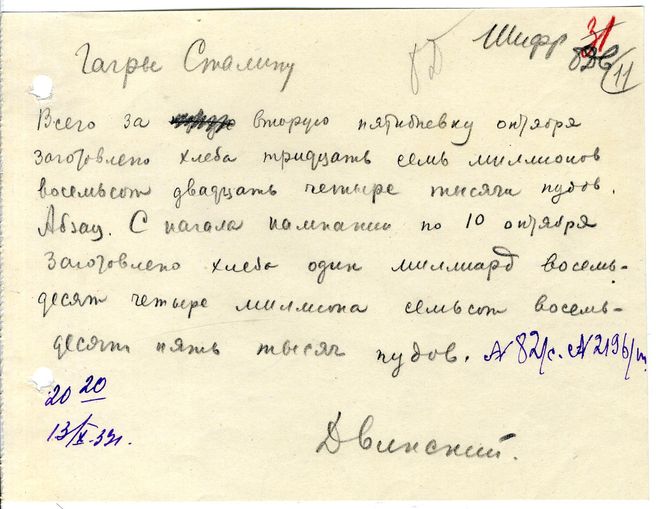 Шифр 31
Гагры Сталину
11
Всего за вторую пятидневку октября
заготовлено хлеба тридцать семь миллионов
восемьсот двадцать четыре тысячи пудов.
Абзац. С начала кампании по 10 октября
заготовлено хлеба один миллиард восемь-
десят четыре миллиона семьсот восемь-
десят пять тысяч пудов. № 82/с. № 2196/ш
20 20
13/X-33г.
Двинский.